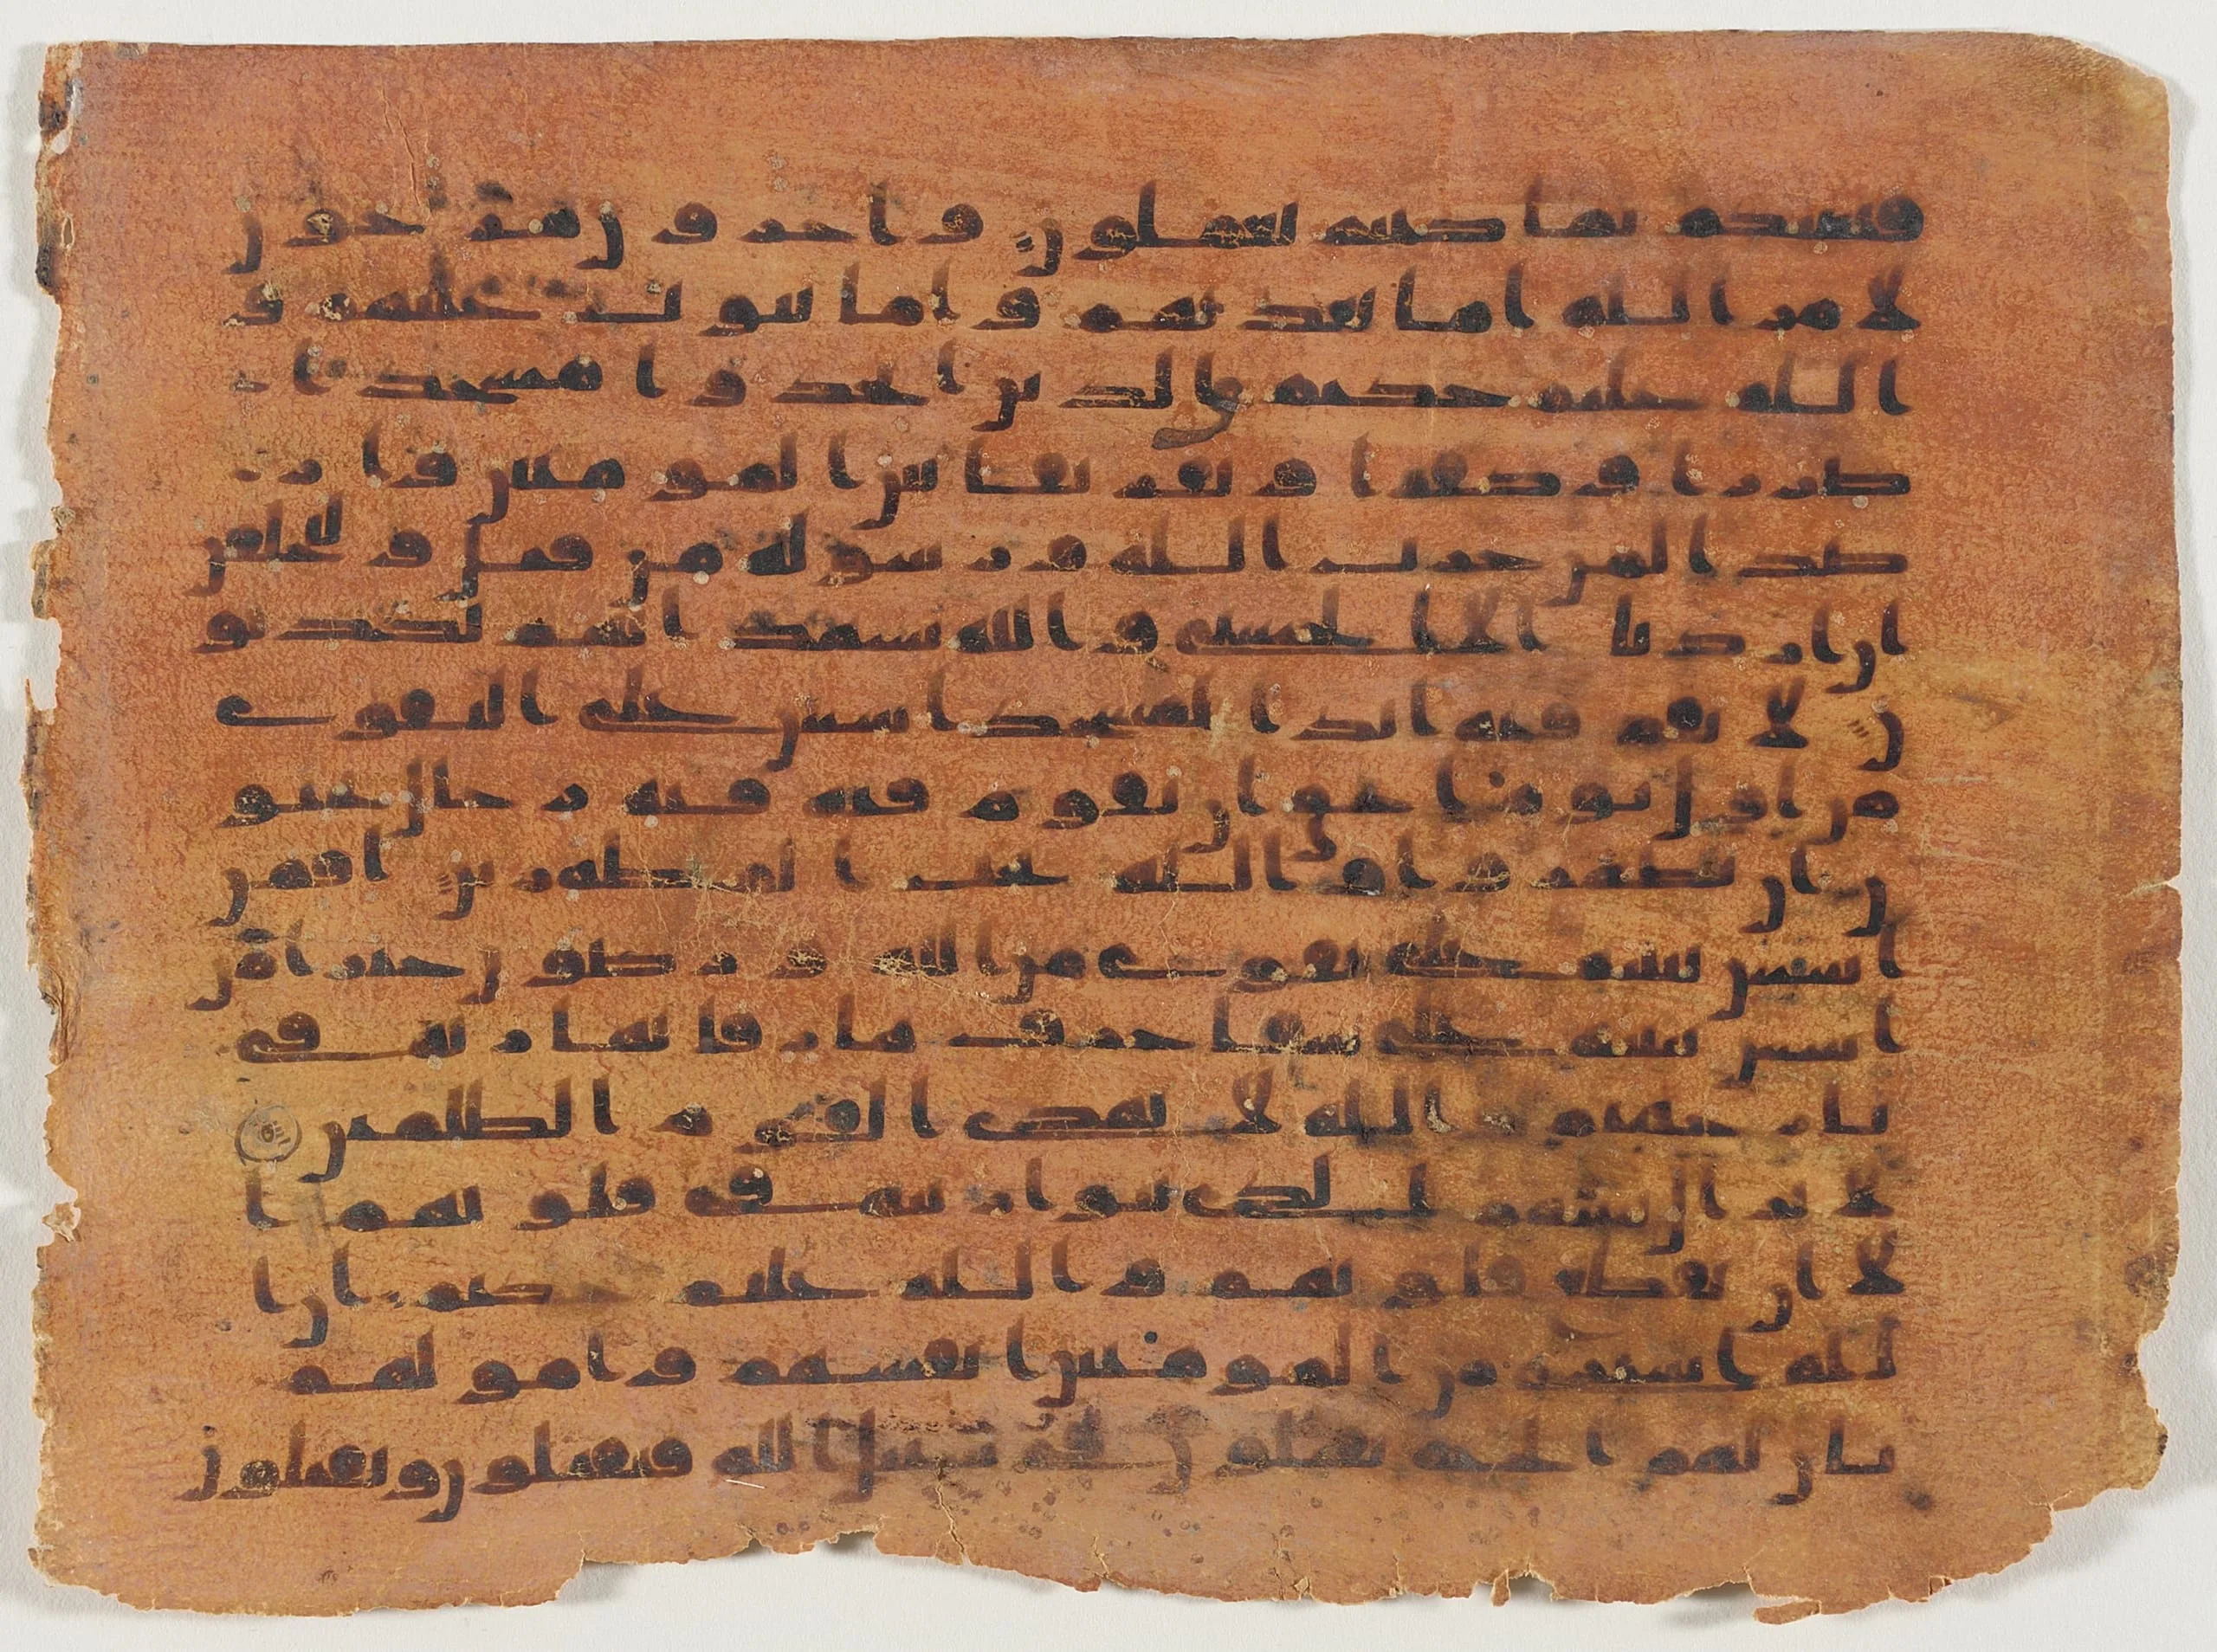 فينبئكم بما كنتم تعملون واخرون مرجون
لامر الله اما يعذبهم واما يتوب عليهم و
الله عليم حكيم والذين اتخذوا مسجدا
ضرارا وكفرا وتفريقا بين المومنين وار
صدا لمن حرب الله ورسوله من قبل وليحلفن
ان اردنا الا الحسنى والله يشهد انهم لكذبو
ن لا تقم فيه ابدا لمسجد اسس على التقوى
من اول يوم احق ان تقوم فيه فيه رجال يحبو
ن ان يتطهروا والله يحب المطهرين افمن
اسس بنينه على تقوى من الله ورضون خير ام من
اسس بنينه على شفا جرف هار فانهار به في
نار جهنم والله لا يهدي القوم الظلمين
لا يزال بنينهم الذي بنوا ريبة في قلوبهم ا
لا ان تقطع قلوبهم والله عليم حكيم ان ا
لله اشترى من المومنين انفسهم وامولهم
بان لهم الجنة يقتلون في سبيل الله فيقتلون ويقتلون